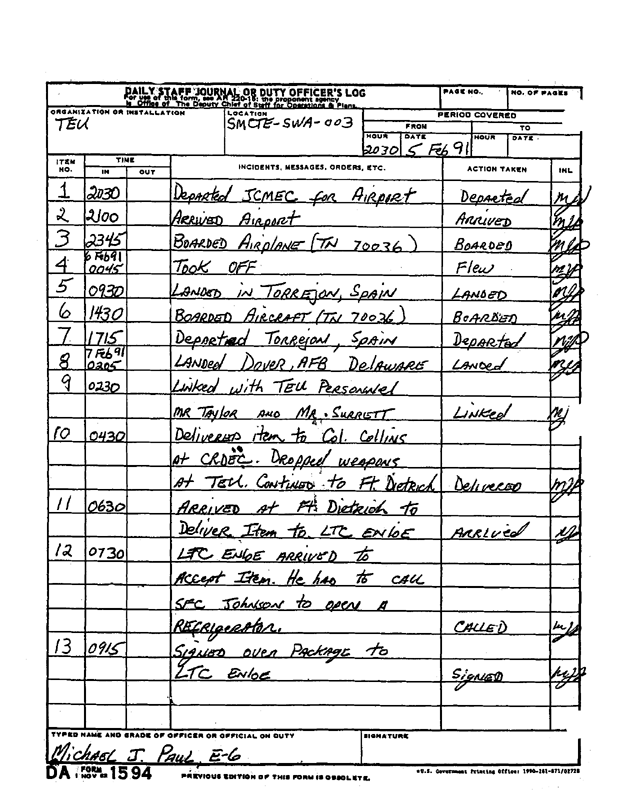 DAILY STAFF JOURNAL OR DUTY OFFICER'S LOG
For use of this form, see AR 220-15; the proponent agency
is Office of The Deputy Chief of Staff for Operations & Plans.
PAGE NO.
NO. OF PAGES
ORGANIZATION OR INSTALLATION
TEU
LOCATION
SMCTE-SWA-003
PERIOD COVERED
FROM
TO
HOUR
DATE
HOUR
DATE
2030 5 Feb 91
ITEM NO.
TIME
IN
OUT
INCIDENTS, MESSAGES, ORDERS, ETC.
ACTION TAKEN
INL
1 2030 Departed JCMEC for Airport Departed MJP
2 2100 Arrived Airport Arrived MJP
3 2345 Boarded Airplane (TN 70036) Boarded MJP
6 Feb 91
4 0045 Took off Flew MJP
5 0930 Landed in Torrejon, Spain Landed MJP
6 1430 Boarded Aircraft (TN 70036) Boarded MJP
7 1715 Departed Torrejon, Spain Departed MJP
7 Feb 91
8 0205 Landed Dover, AFB Delaware Landed MJP
9 0230 Linked with TEU Personnel
Mr Taylor and Mr. Surrett Linked MJ
10 0430 Delivered item to Col. Collins
at CRDEC. Dropped weapons
at TEU. Contined to Ft Dietrich Delivered MJP
11 0630 Arrived at Ft. Dietrich to
Deliver Item to LTC Enloe Arrived
12 0730 LTC Enloe arrived to
Accept Item. He had to call
SFC Johnson to open a
Refrigerator. Called MJP
13 0915 Signed over Package to
LTC Enloe Signed MJP
TYPED NAME AND GRADE OF OFFICER OR OFFICIAL ON DUTY
SIGNATURE
Michael J. Paul, E-6
DA FORM 1 NOV 1594
PREVIOUS EDITION OF THIS FORM IS OBSOLETE.
U.S. Government Printing Office: 1990-261-871/02728